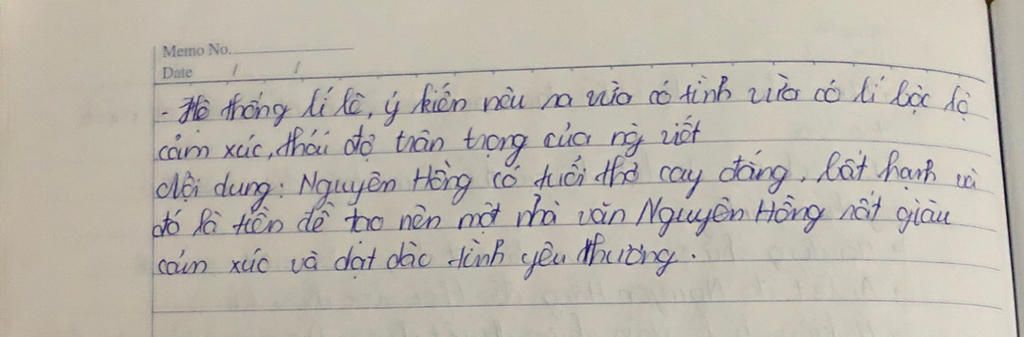 Memo No.
Date / /
- Hệ thống lí lẽ, ý kiến nêu ra vừa có tình vừa có lí bộc lộ
cảm xúc, thái độ trân trọng của ng viết
Nội dung: Nguyên Hồng có tuổi thơ cay đắng, bất hạnh và
đó là tiền đề tạo nên một nhà văn Nguyên Hồng rất giàu
cảm xúc và dạt dào tình yêu thương.